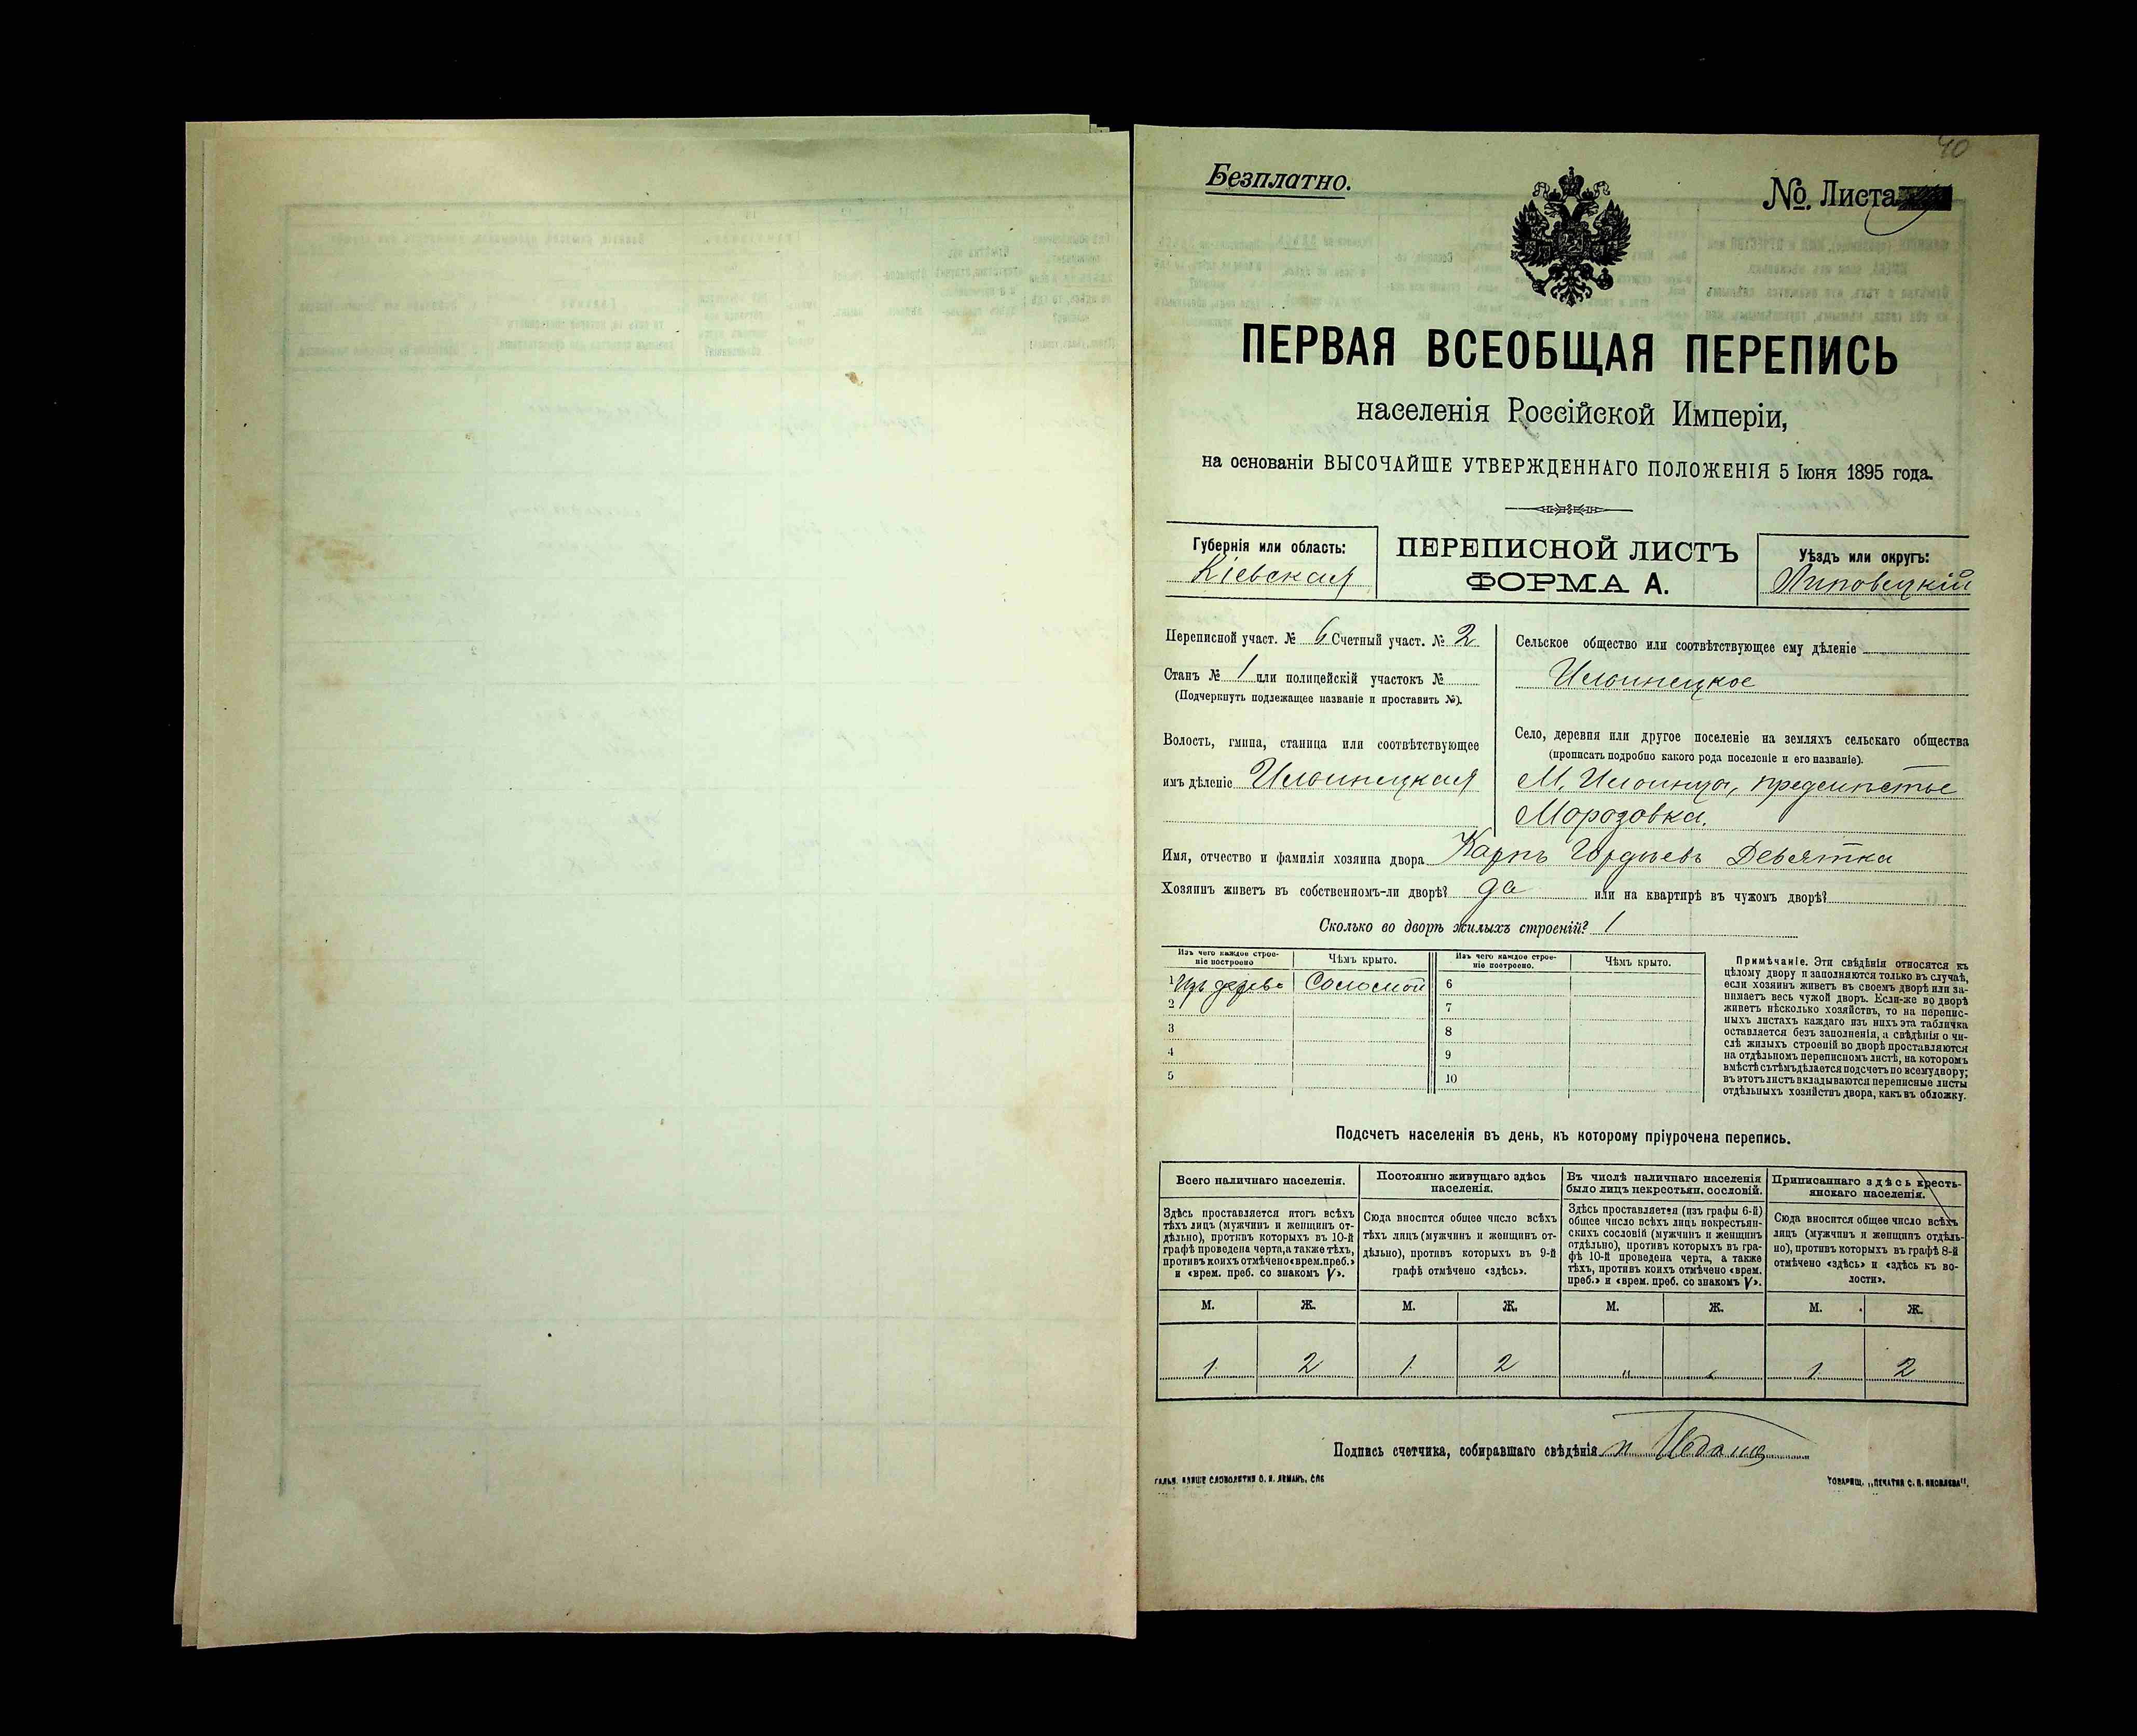 40
Безплатно.
№. Листа
ПЕРВАЯ ВСЕОБЩАЯ ПЕРЕПИСЬ
населенія Россійской Имперіи,
на основаніи ВЫСОЧАЙШЕ УТВЕРЖДЕННАГО ПОЛОЖЕНІЯ 5 Іюня 1895 года.
Губернія или область:
Кіевская
ПЕРЕПИСНОЙ ЛИСТЪ
ФОРМА А.
Уѣздъ или округъ:
Липовецкій
Переписной участ. № 6 Счетный участ. № 2
Станъ № 1 или полицейскій участокъ №
(Подчеркнуть подлежащее названіе и проставить №).
Волость, гмина, станица или соотвѣтствующее
имъ дѣленіе Ильинецкая
Сельское общество или соотвѣтствующее ему дѣленіе
Ильинецкое
Село, деревня или другое поселеніе на земляхъ сельскаго общества
(прописать подробно какого рода поселеніе и его названіе).
М. Ильинцы, предмѣстье
Морозовка.
Имя, отчество и фамилія хозяина двора Карпъ Гордѣевъ Девятка
Хозяинъ живетъ въ собственномъ-ли дворѣ? да или на квартирѣ въ чужомъ дворѣ?
Сколько во дворѣ жилыхъ строеній? 1
Изъ чего каждое строе-
ніе построено
Чѣмъ крыто.
Изъ чего каждое строе-
ніе построено.
Чѣмъ крыто.
1 Изъ дерева Соломой 6
2 7
3 8
4 9
5 10
Примѣчаніе. Эти свѣдѣнія относятся къ
цѣлому двору и заполняются только въ случаѣ,
если хозяинъ живетъ въ своемъ дворѣ или за-
нимаетъ весь чужой дворъ. Если-же во дворѣ
живетъ нѣсколько хозяйствъ, то на перепис-
ныхъ листахъ каждаго изъ нихъ эта табличка
оставляется безъ заполненія, а свѣдѣнія о чи-
слѣ жилыхъ строеній во дворѣ проставляются
на отдѣльномъ переписномъ листѣ, на которомъ
вмѣстѣ съ тѣмъ дѣлается подсчетъ по всему двору;
въ этотъ листъ вкладываются переписные листы
отдѣльныхъ хозяйствъ двора, какъ въ обложку.
Подсчетъ населенія въ день, къ которому пріурочена перепись.
Всего наличнаго населенія.
Здѣсь проставляется итогъ всѣхъ
тѣхъ лицъ (мужчинъ и женщинъ от-
дѣльно), противъ которыхъ въ 10-й
графѣ проведена черта, а также тѣхъ,
противъ коихъ отмѣчено «врем. преб.»
и «врем. преб. со знакомъ V».
Постоянно живущаго здѣсь
населенія.
Сюда вносится общее число всѣхъ
тѣхъ лицъ (мужчинъ и женщинъ от-
дѣльно), противъ которыхъ въ 9-й
графѣ отмѣчено «здѣсь».
Въ числѣ наличнаго населенія
было лицъ некрестьян. сословій.
Здѣсь проставляется (изъ графы 6-й)
общее число всѣхъ лицъ некрестьян-
скихъ сословій (мужчинъ и женщинъ
отдѣльно), противъ которыхъ въ гра-
фѣ 10-й проведена черта, а также
тѣхъ, противъ коихъ отмѣчено «врем.
преб.» и «врем. преб. со знакомъ V».
Приписаннаго здѣсь кресть-
янскаго населенія.
Сюда вносится общее число всѣхъ
лицъ (мужчинъ и женщинъ отдѣль-
но), противъ которыхъ въ графѣ 8-й
отмѣчено «здѣсь» и «здѣсь къ во-
лости».
М. Ж. М. Ж. М. Ж. М. Ж.
1 2 1 2 " " 1 2
Подпись счетчика, собиравшаго свѣдѣнія
ТОВАРИЩ. „ПЕЧАТНЯ С. П. ЯКОВЛЕВА".